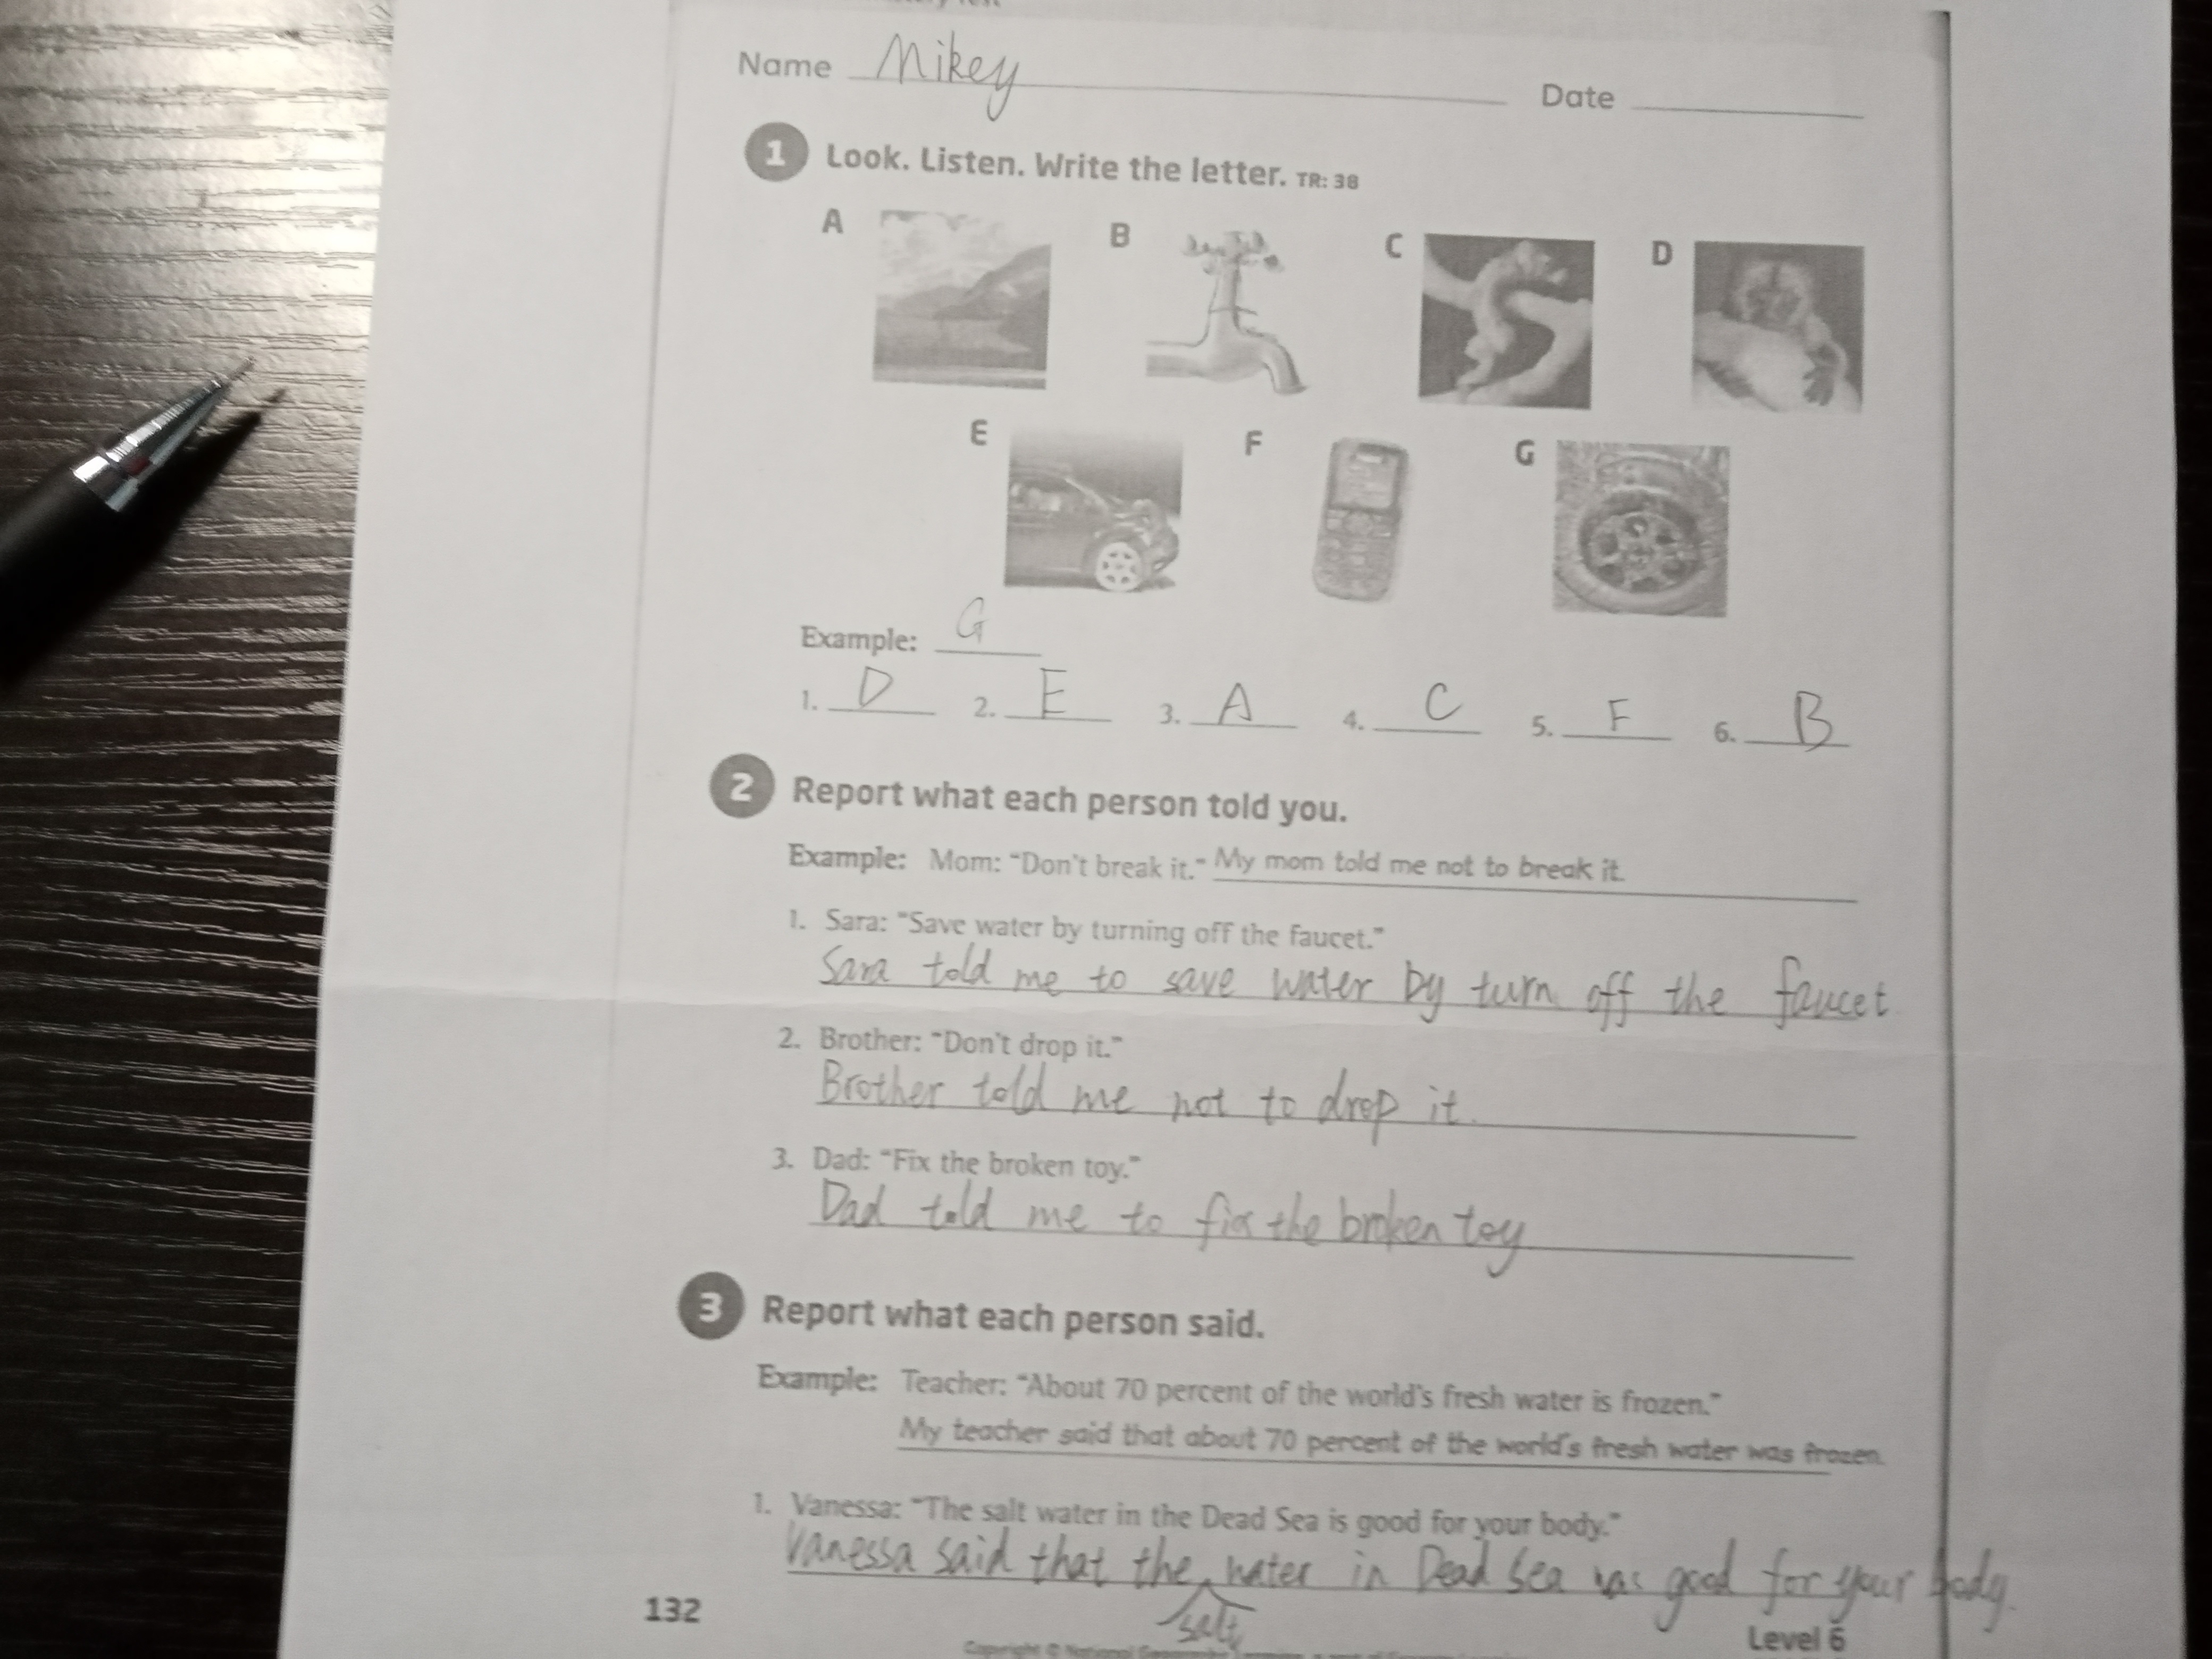 Name Mikey Date
1 Look. Listen. Write the letter. TR: 38
A B C D
E F G
Example: G
1. D 2. E 3. A 4. C 5. F 6. B
2 Report what each person told you.
Example: Mom: "Don't break it." My mom told me not to break it.
1. Sara: "Save water by turning off the faucet."
Sara told me to save water by turn off the faucet
2. Brother: "Don't drop it."
Brother told me not to drop it.
3. Dad: "Fix the broken toy."
Dad told me to fix the broken toy
3 Report what each person said.
Example: Teacher: "About 70 percent of the world's fresh water is frozen."
My teacher said that about 70 percent of the world's fresh water was frozen.
1. Vanessa: "The salt water in the Dead Sea is good for your body."
Vanessa said that the water in Dead Sea was good for your body.
salt
132 Level 6
Copyright © National Geographic Learning